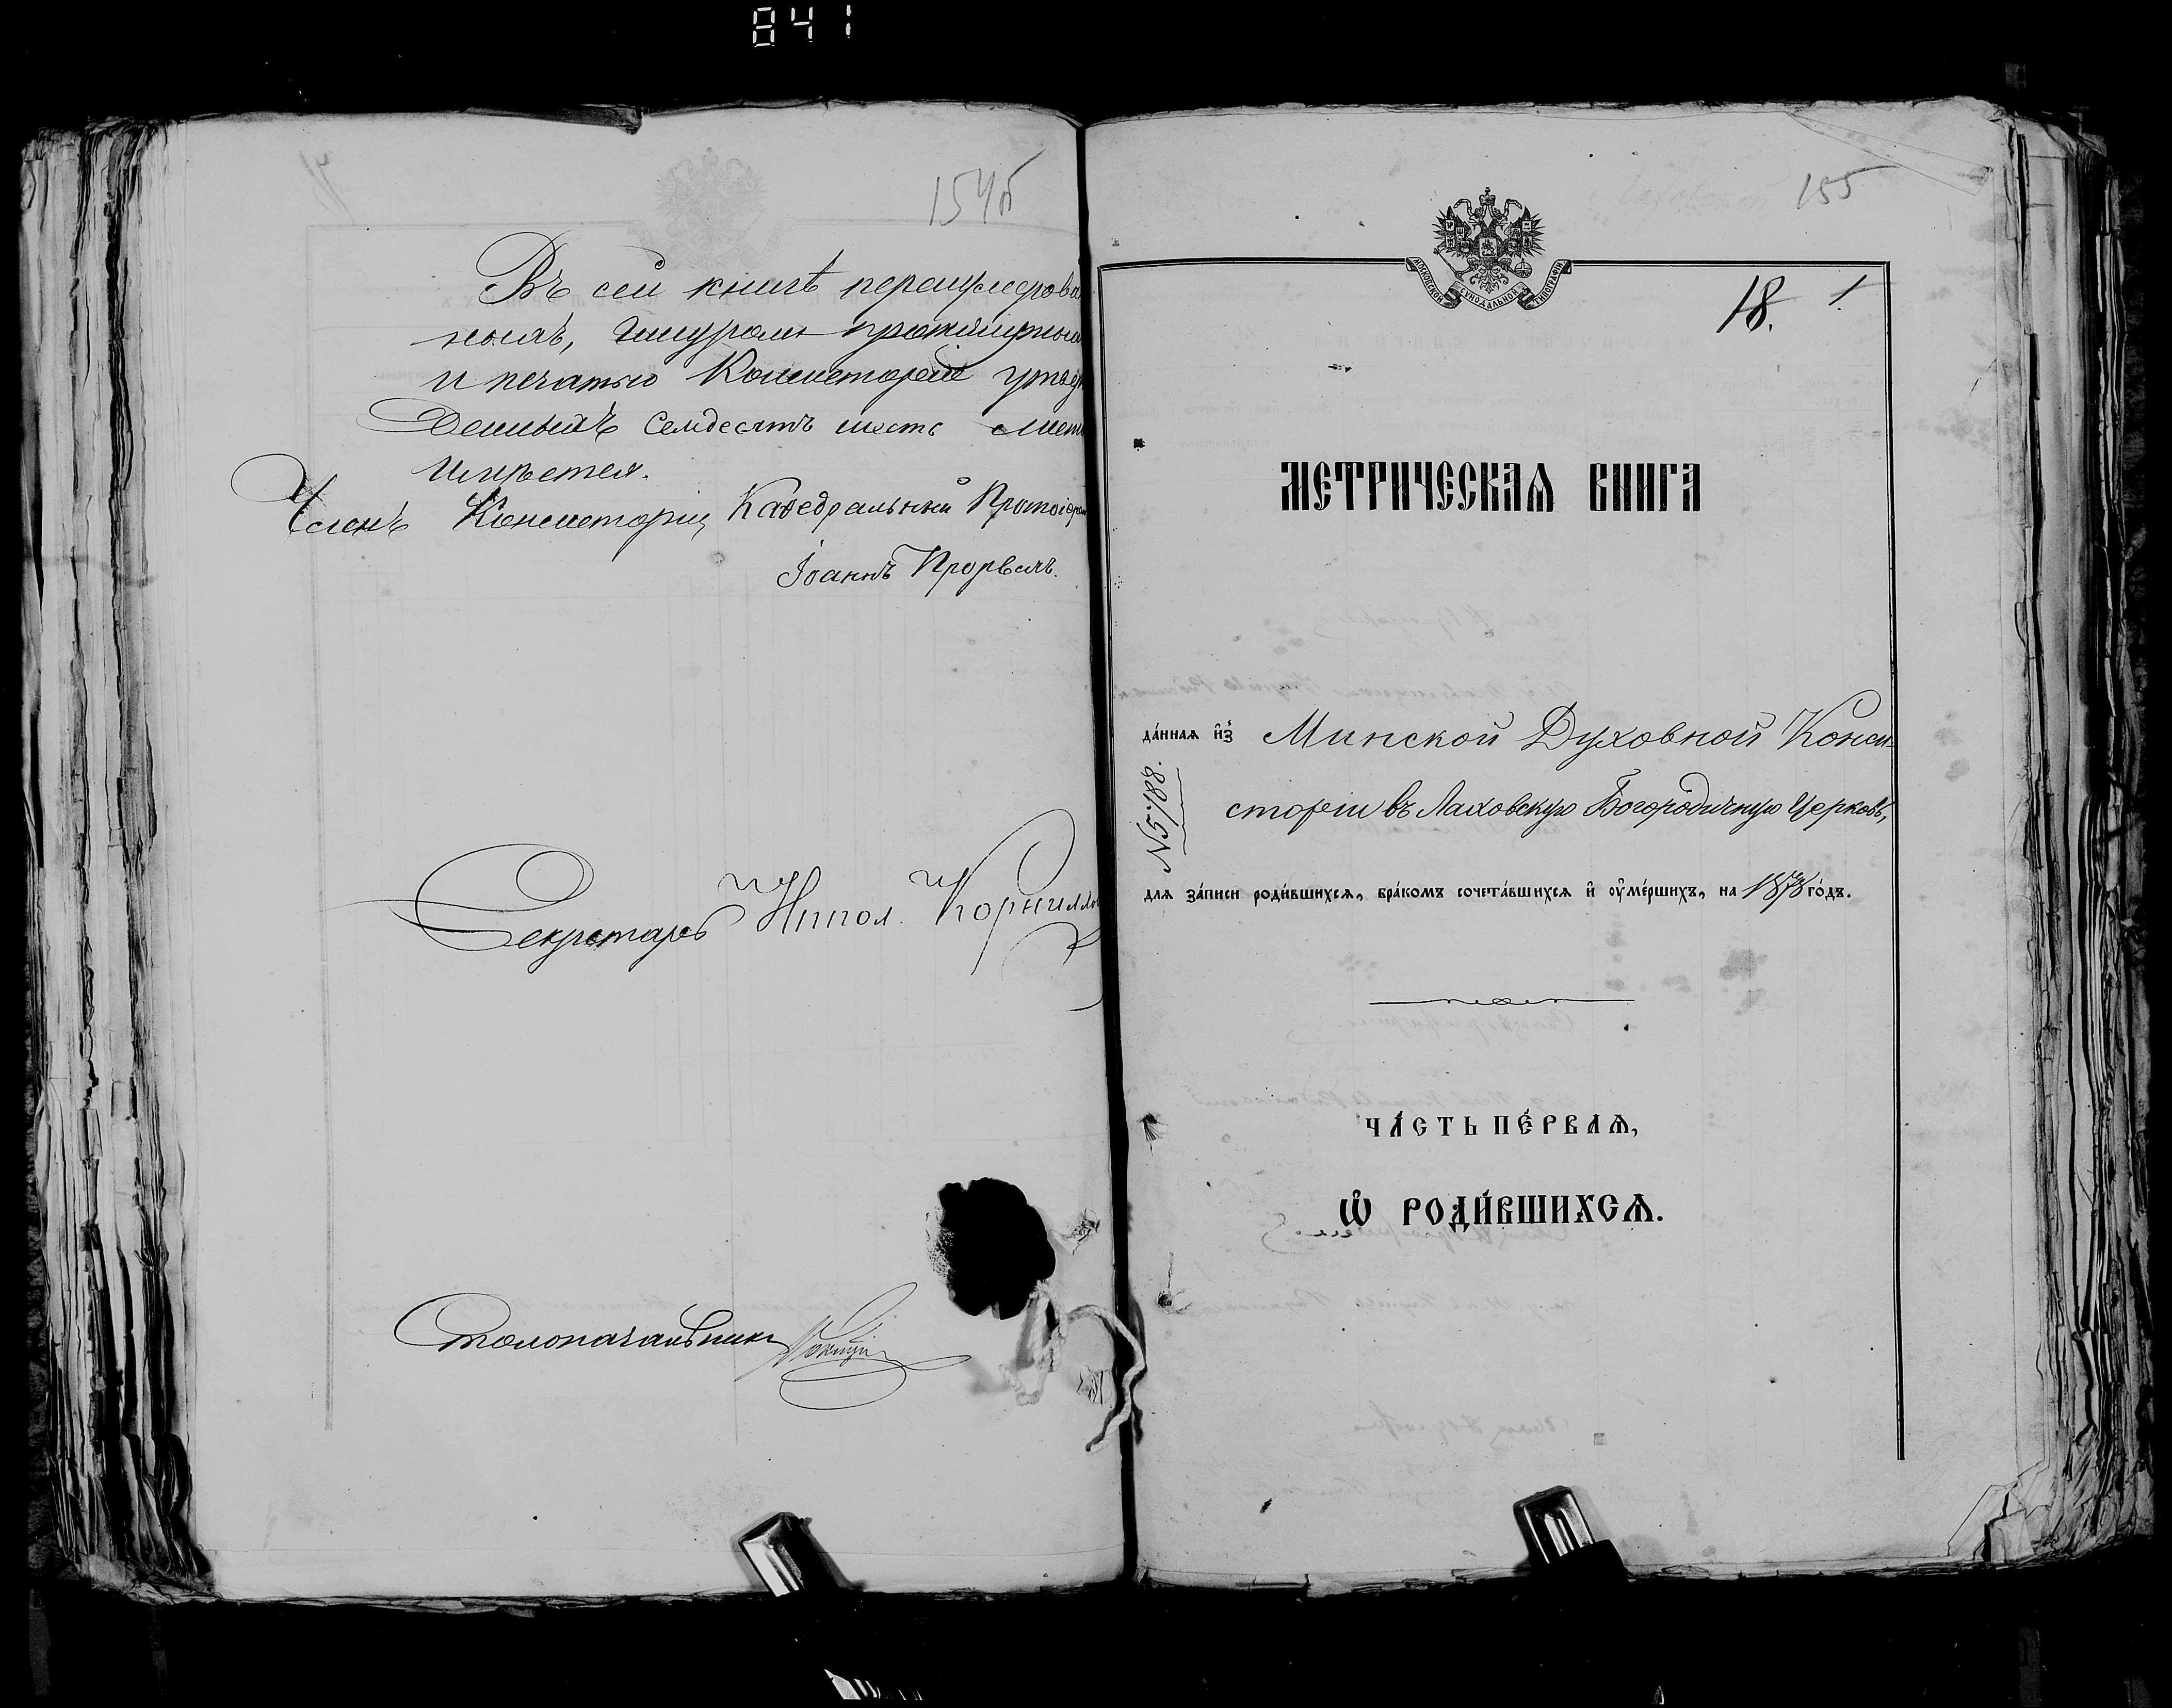 841
154об
Въ сей книгѣ перенумерова
ныхъ, шнуромъ прошнурован
и печатью Консисторіи утверж
денныхъ семдесятъ шесть лист
имѣется.
Членъ Консисторіи, Каѳедральный Протоіерей
Іоаннъ Прорвичъ.
Секретарь Иппол. Корнилло
Столоначальникъ
155
МОСКОВСКОЙ СѴНОДАЛЬНОЙ ТИПОГРАФІИ
18. 1.
МЕТРИЧЕСКАѦ КНИГА
да́ннаѧ и҆з̾ Минской Духовной Конси-
сторіи въ Лаховскую Богородичную Церковь,
№5788.
для за́писи роди́вшихсѧ, бра́комъ сочета́вшихсѧ и҆ ᲂу҆ме́ршихъ, на 1878 го́дъ.
ЧА́СТЬ ПЕ́РВАѦ,
Ѽ РОДИ́ВШИХСѦ.